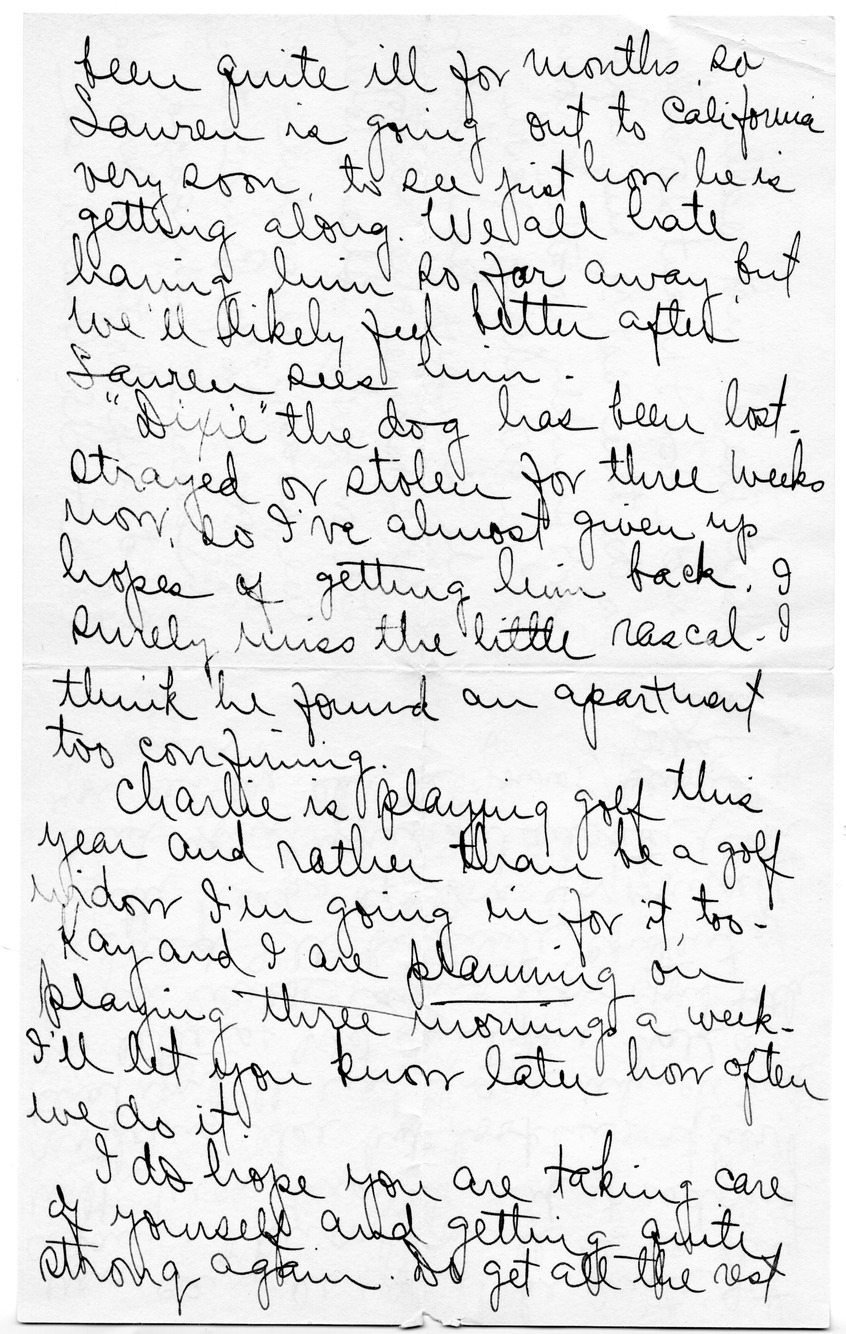 been quite ill for months, so
Lauren is going out to California
very soon, to see just how he is
getting along. We all hate
having him so far away, but
we'll likely feel better after
Lauren sees him.
"Dixie" the dog has been lost-
strayed or stolen for three weeks
now, so I've almost given up
hopes of getting him back. I
surely miss the little rascal - I
think he found an apartment
too confining.
Charlie is playing golf this
year and rather than be a golf
widow I'm going in for it, too -
Kay and I are planning on
playing three mornings a week -
I'll let you know later how often
we do it.
I do hope you are taking care
of yourself and getting quite
strong again. Do get all the rest